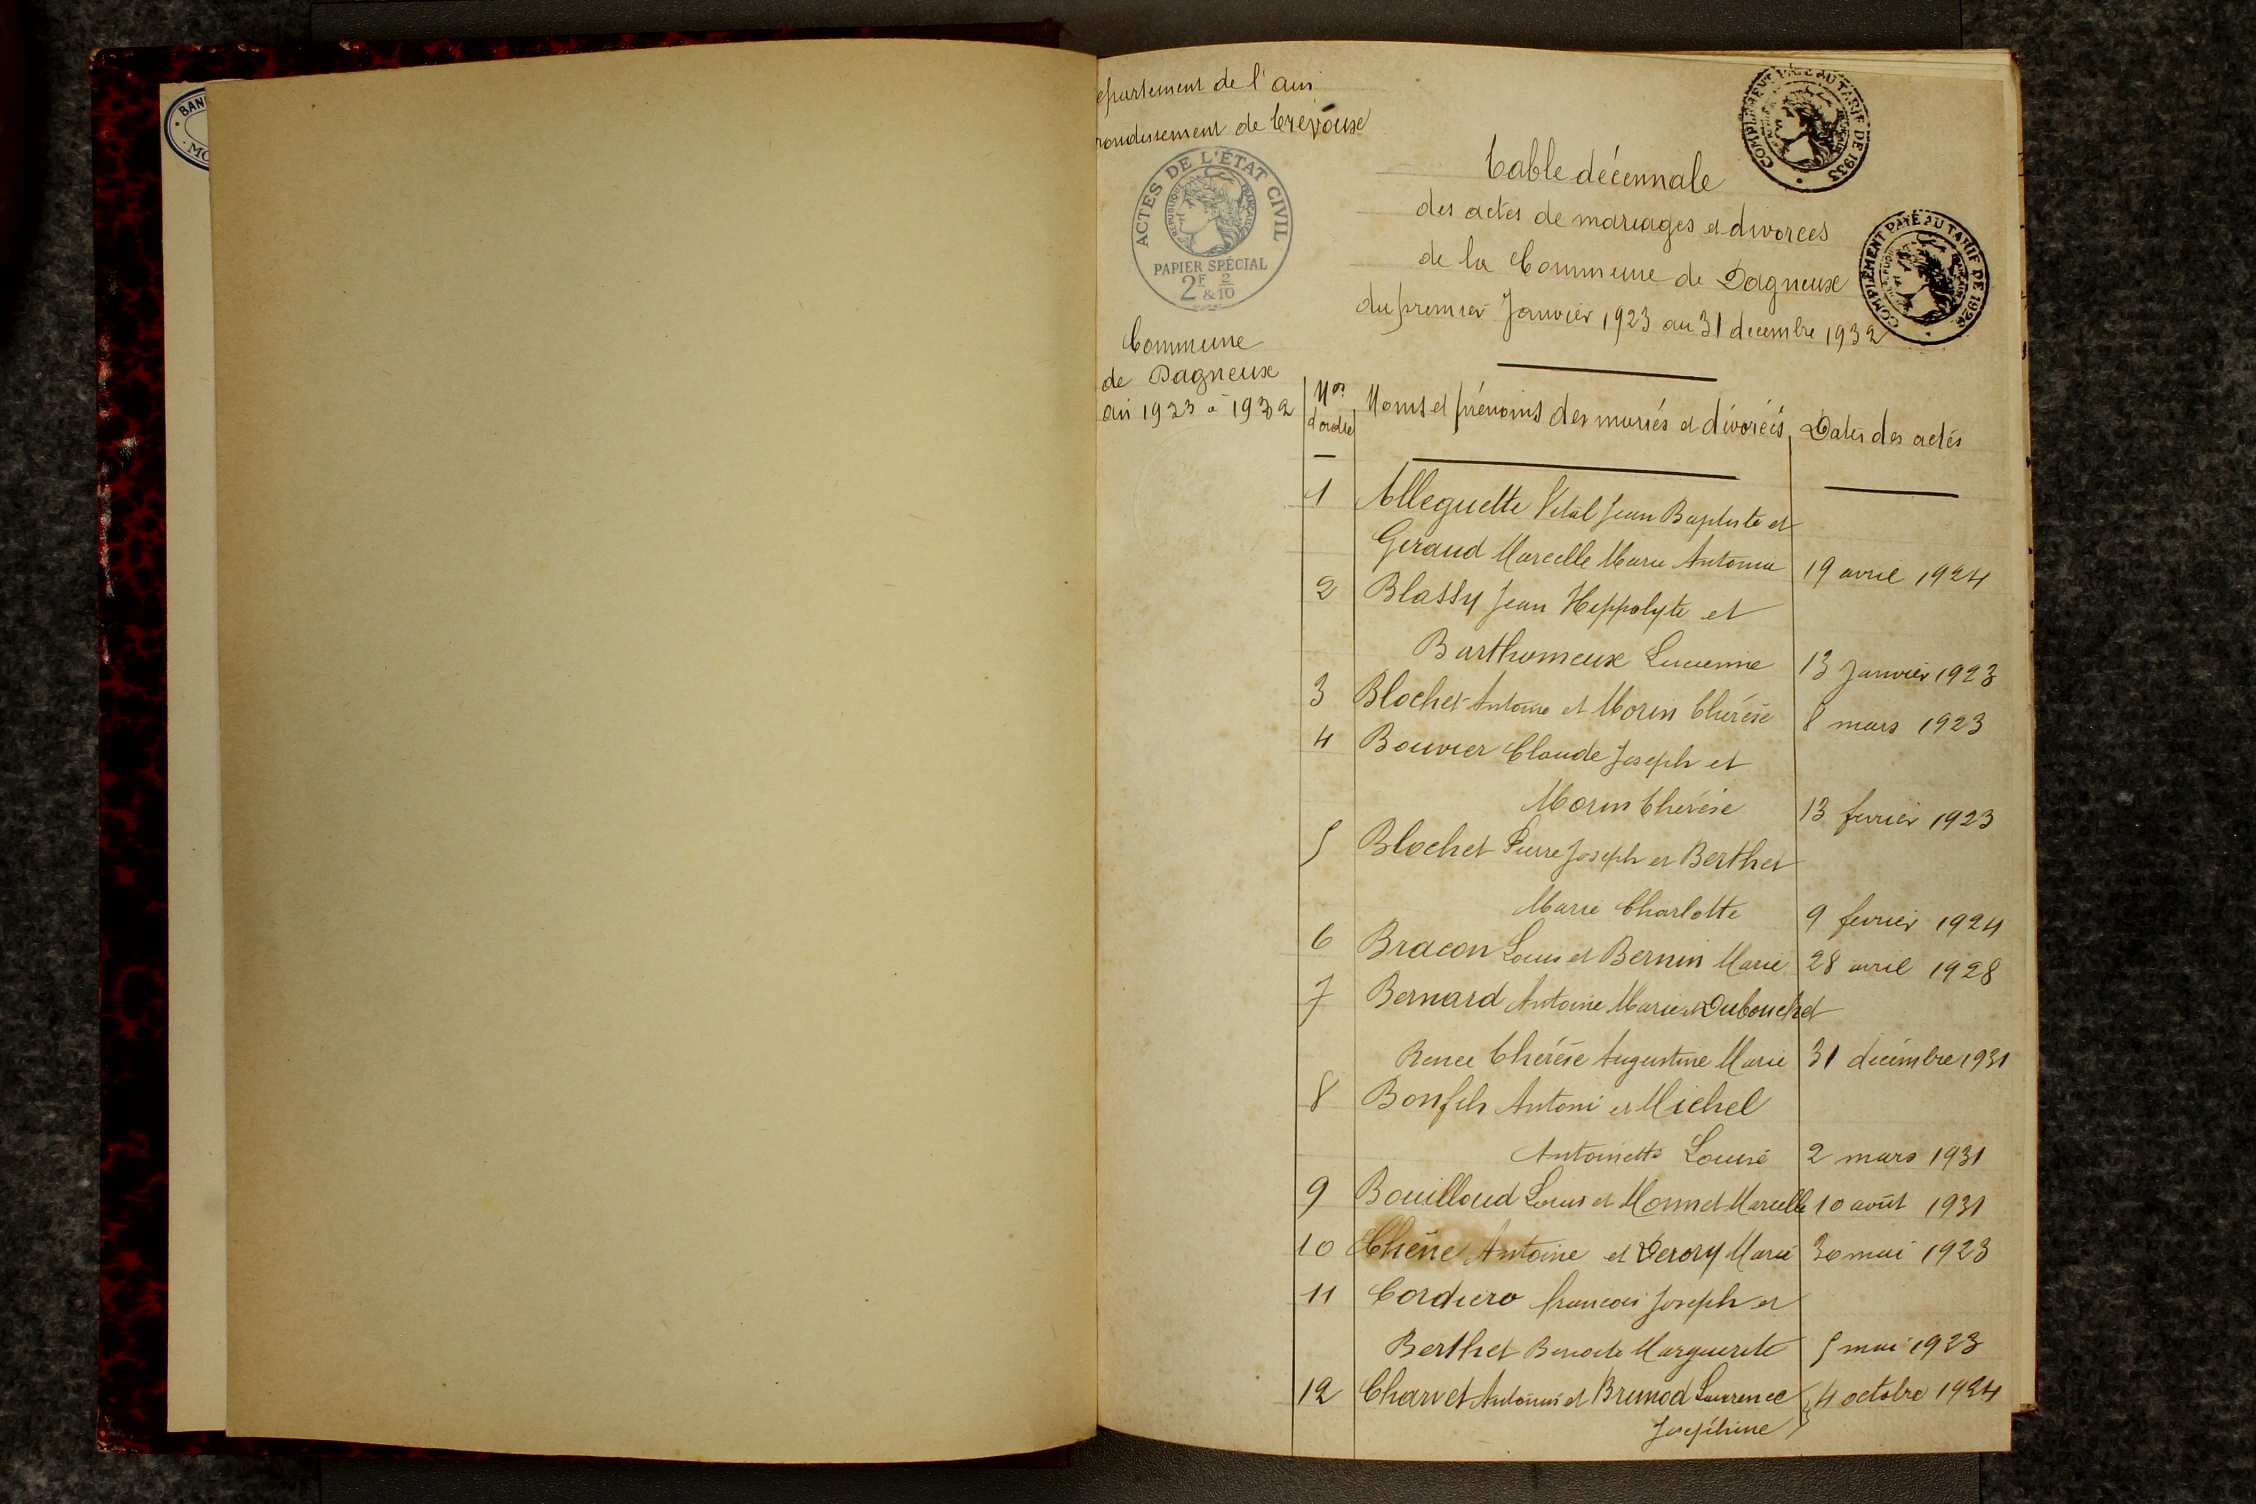 epartement de l'ain
rondissement de Trévoux
ACTES DE L'ÉTAT CIVIL
REPUBLIQUE FRANÇAISE
PAPIER SPÉCIAL
2F & 2/10
Commune
de Dagneux
ans 1923 à 1932
COMPLÉMENT PAYÉ AU TARIF DE 1933
COMPLÉMENT PAYÉ AU TARIF DE 1926
Table décennale
des actes de mariages et divorces
de la Commune de Dagneux
du premier Janvier 1923 au 31 decembre 1932
Nos d'ordre Noms et prénoms des mariés et divorcés Dates des actes
1 Alleguette Vital Jean Baptiste et
Geraud Marcelle Marie Antonia 19 avril 1924
2 Blassy Jean Heppolyte et
Barthomeux Lucienne 13 Janvier 1923
3 Blochet Antoine et Morin Thérèse 8 mars 1923
4 Bouvier Claude Joseph et
Morin Thérèse 13 fevrier 1923
5 Blochet Pierre Joseph et Berthet
Marie Charlotte 9 fevrier 1924
6 Bracon Louis et Bernin Marie 28 avril 1928
7 Bernard Antoine Marie et Dubouchet
Renee Thérèse Augustine Marie 31 décembre 1931
8 Bonfils Antoni et Michel
Antoinette Louise 2 mars 1931
9 Bouilloud Louis et Monnet Marcelle 10 août 1931
10 Chêne Antoine et Derory Marie 30 mai 1923
11 Cordiero francois Joseph et
Berthet Benoite Marguerite 5 mai 1923
12 Charvet Antonin et Brunod Laurence 4 octobre 1924
Joséphine